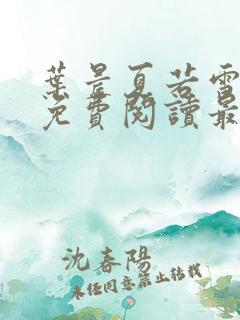 葉晨夏若雪
免費閱讀最
沈春陽
未經同意禁止轉載